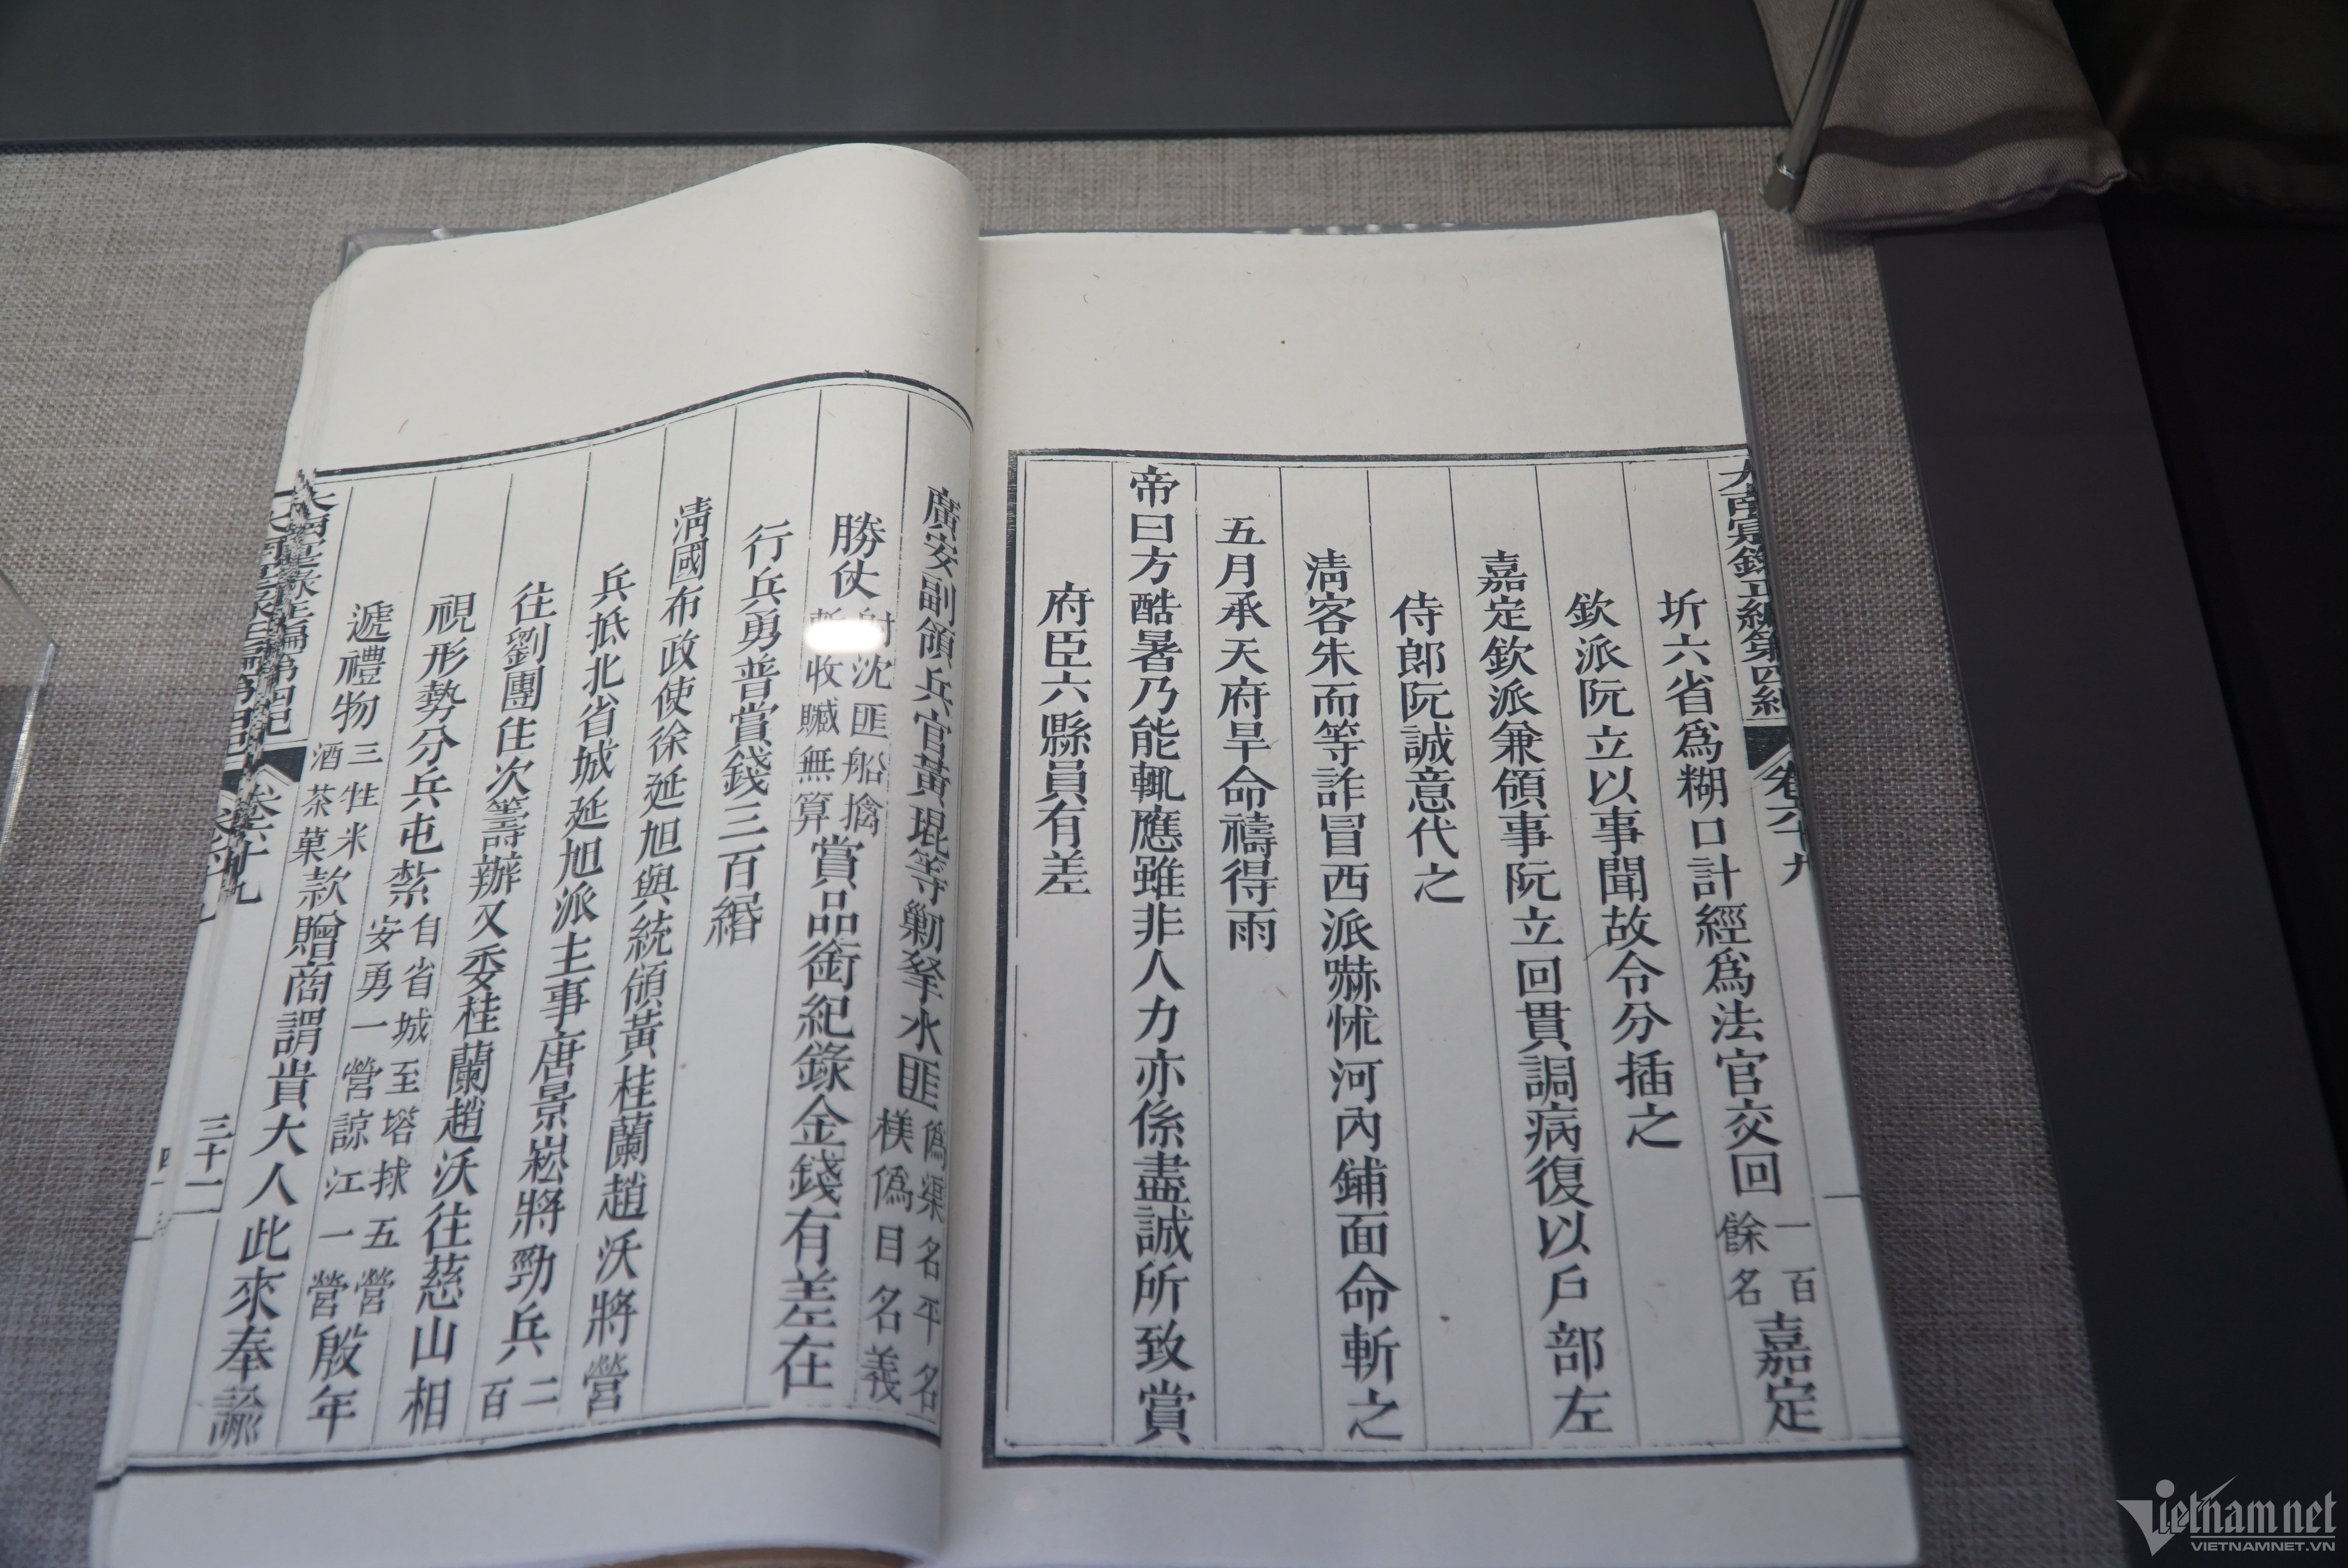 大南寔錄正編第四紀 卷六十九
圻六省爲糊口計經爲法官交回一百餘名嘉定
欽派阮立以事聞故令分插之
嘉定欽派兼領事阮立回貫調病復以戶部左
侍郎阮誠意代之
淸客朱而等詐冒西派嚇怵河內鋪面命斬之
五月承天府旱命禱得雨
帝曰方酷暑乃能輒應雖非人力亦係盡誠所致賞
府臣六縣員有差
廣安副領兵官黃琨等勦拏水匪僞渠名平名樸僞目名義
勝仗射沈匪船擒斬收贓無算賞品銜紀錄金錢有差在
行兵勇普賞錢三百緡
淸國布政使徐延旭與統領黃桂蘭趙沃將營
兵抵北省城延旭派主事唐景崧將勁兵二百
往劉團住次籌辦又委桂蘭趙沃往慈山相
視形勢分兵屯紮自省城至塔捄五營安勇一營諒江一營殷年
遞禮物三牲米酒茶菓款贈商謂貴大人此來奉諭
大南寔錄正編第四紀 卷六十九 三十一
VIETNAMNET
VIETNAMNET.VN